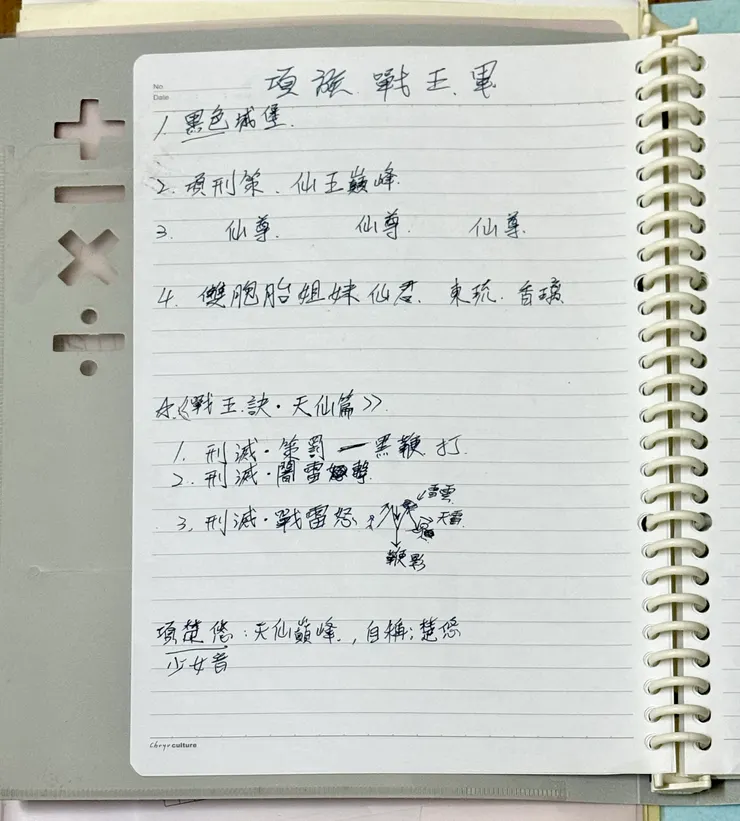 No
Date
項族 戰王軍
1. 黑色城堡.
2. 項刑策. 仙王巔峰.
3. 仙尊. 仙尊. 仙尊.
4. 雙胞胎姐妹仙君. 東琉. 首璃
《戰王訣·天仙篇》.
1. 刑滅·策罰 一黑鞭打.
2. 刑滅·闇雷擊.
3. 刑滅·戰雷怒
雷雲
天雷
鞭影
項楚悠:天仙巔峰., 自稱:楚悠
少女音
culture